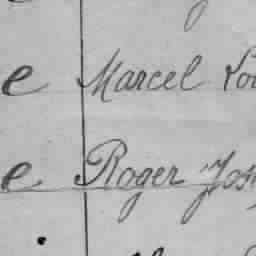 e Marcel Lou
e Roger Jos